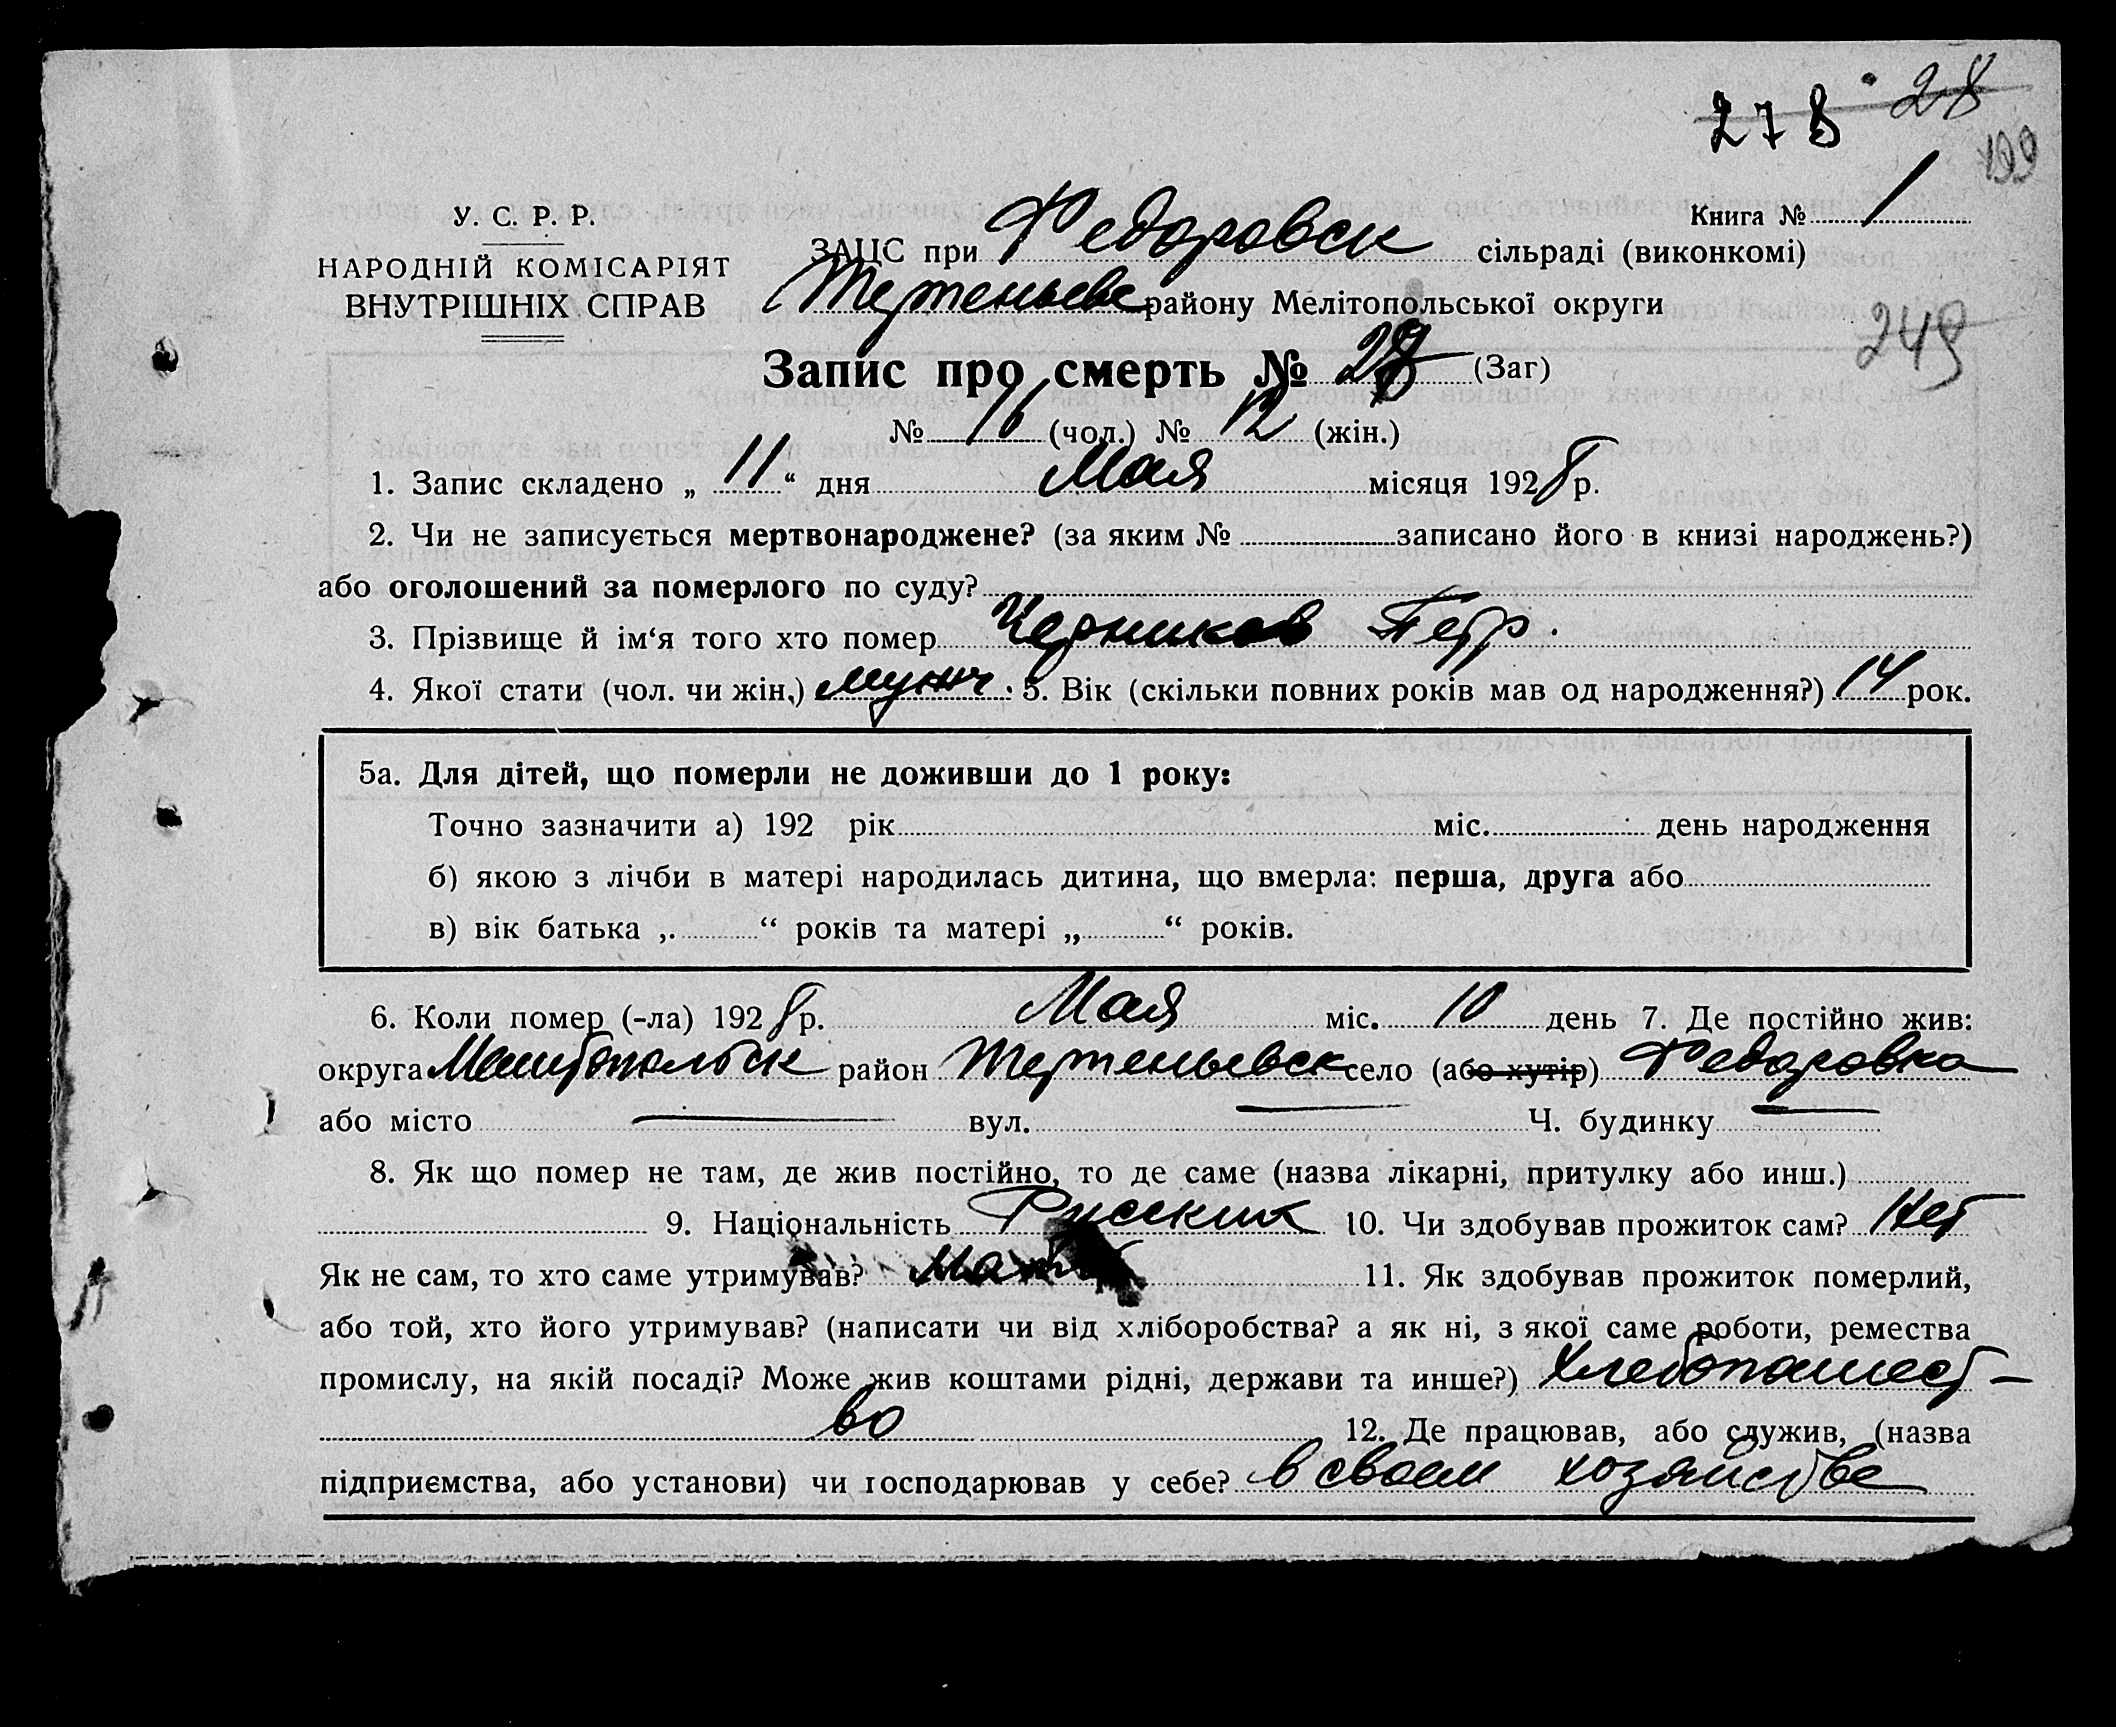 278 28
199
У. С. Р. Р.
Книга № 1
НАРОДНІЙ КОМІСАРІЯТ
ВНУТРІШНІХ СПРАВ
ЗАЦС при Федоровск сільраді (виконкомі)
Терпеньевс району Мелітопольської округи
249
Запис про смерть № 28 (Заг)
№ 16 (чол.) № 12 (жін.)
1. Запис складено „ 11 “ дня Мая місяця 1928 р.
2. Чи не записується мертвонароджене? (за яким № записано його в книзі народжень?)
або оголошений за померлого по суду?
3. Прізвище й ім‘я того хто помер Черников Петр.
4. Якої стати (чол. чи жін.) мужч. 5. Вік (скільки повних років мав од народження?) 14 рок.
5а. Для дітей, що померли не доживши до 1 року:
Точно зазначити а) 192 рік міс. день народження
б) якою з лічби в матері народилась дитина, що вмерла: перша, друга або
в) вік батька „ “ років та матері „ “ років.
6. Коли помер (-ла) 1928 р. Мая міс. 10 день 7. Де постійно жив:
округа Мелитопольск район Терпеньевск село (або хутір) Федоровка
або місто — вул. — Ч. будинку —
8. Як що помер не там, де жив постійно, то де саме (назва лікарні, притулку або инш.)
9. Національність Русских 10. Чи здобував прожиток сам? Нет
Як не сам, то хто саме утримував? мать 11. Як здобував прожиток померлий,
або той, хто його утримував? (написати чи від хліборобства? а як ні, з якої саме роботи, ремества
промислу, на якій посаді? Може жив коштами рідні, держави та инше?) хлебопашест-
во 12. Де працював, або служив, (назва
підприємства, або установи) чи господарював у себе? в своем хозяйстве